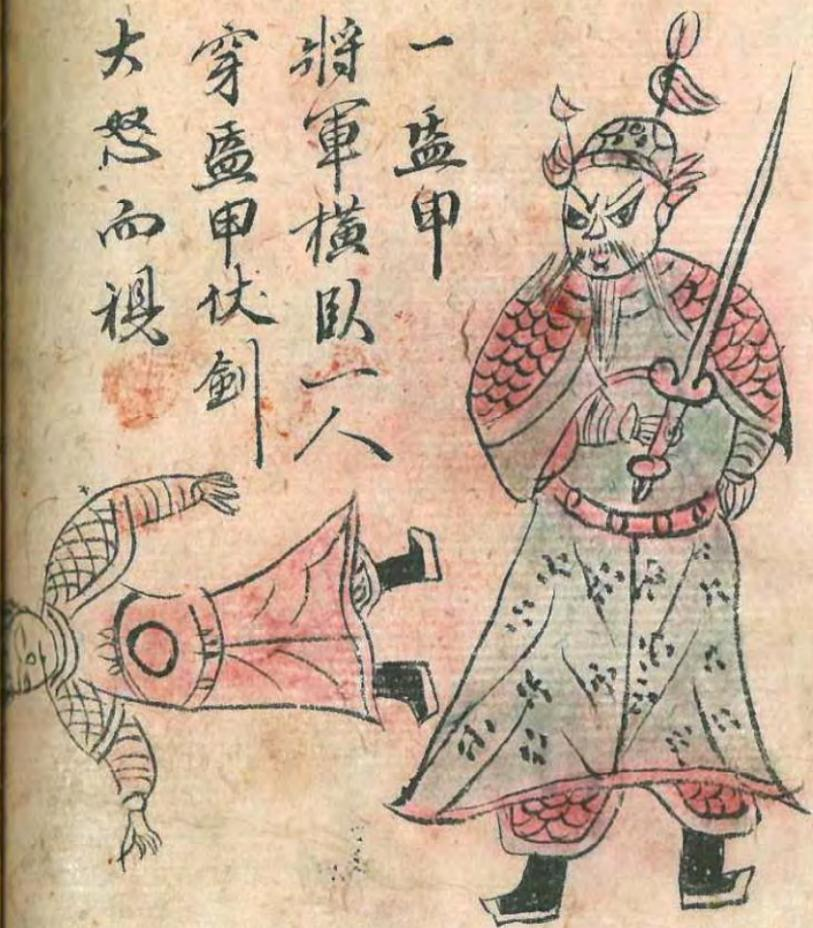 一盔甲
將軍橫臥一人
穿盔甲仗劍
大怒而視